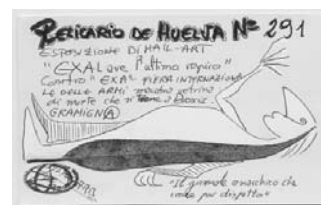 PELICARIO DE HUELVA Nº 291
ESPOSIZIONE DI MAIL-ART
"EXALare l'attimo
CONTRO "EXA" FIERA INTERNAZIONA
LE DELLE ARMI mostra vetrina
di morte che si tiene a
GRAMIGNA
"Il giornale anarchico che
per dispetto"